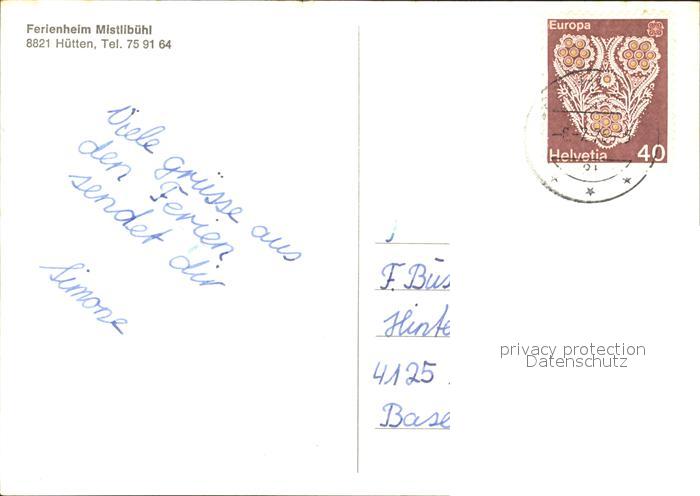 Ferienheim Mistlibühl
8821 Hütten, Tel. 75 91 64
Europa
Helvetia 40
Viele grüsse aus
den Ferien
sendet dir
Simone
F. Büs
Hinte
4125
Base
privacy protection
Datenschutz